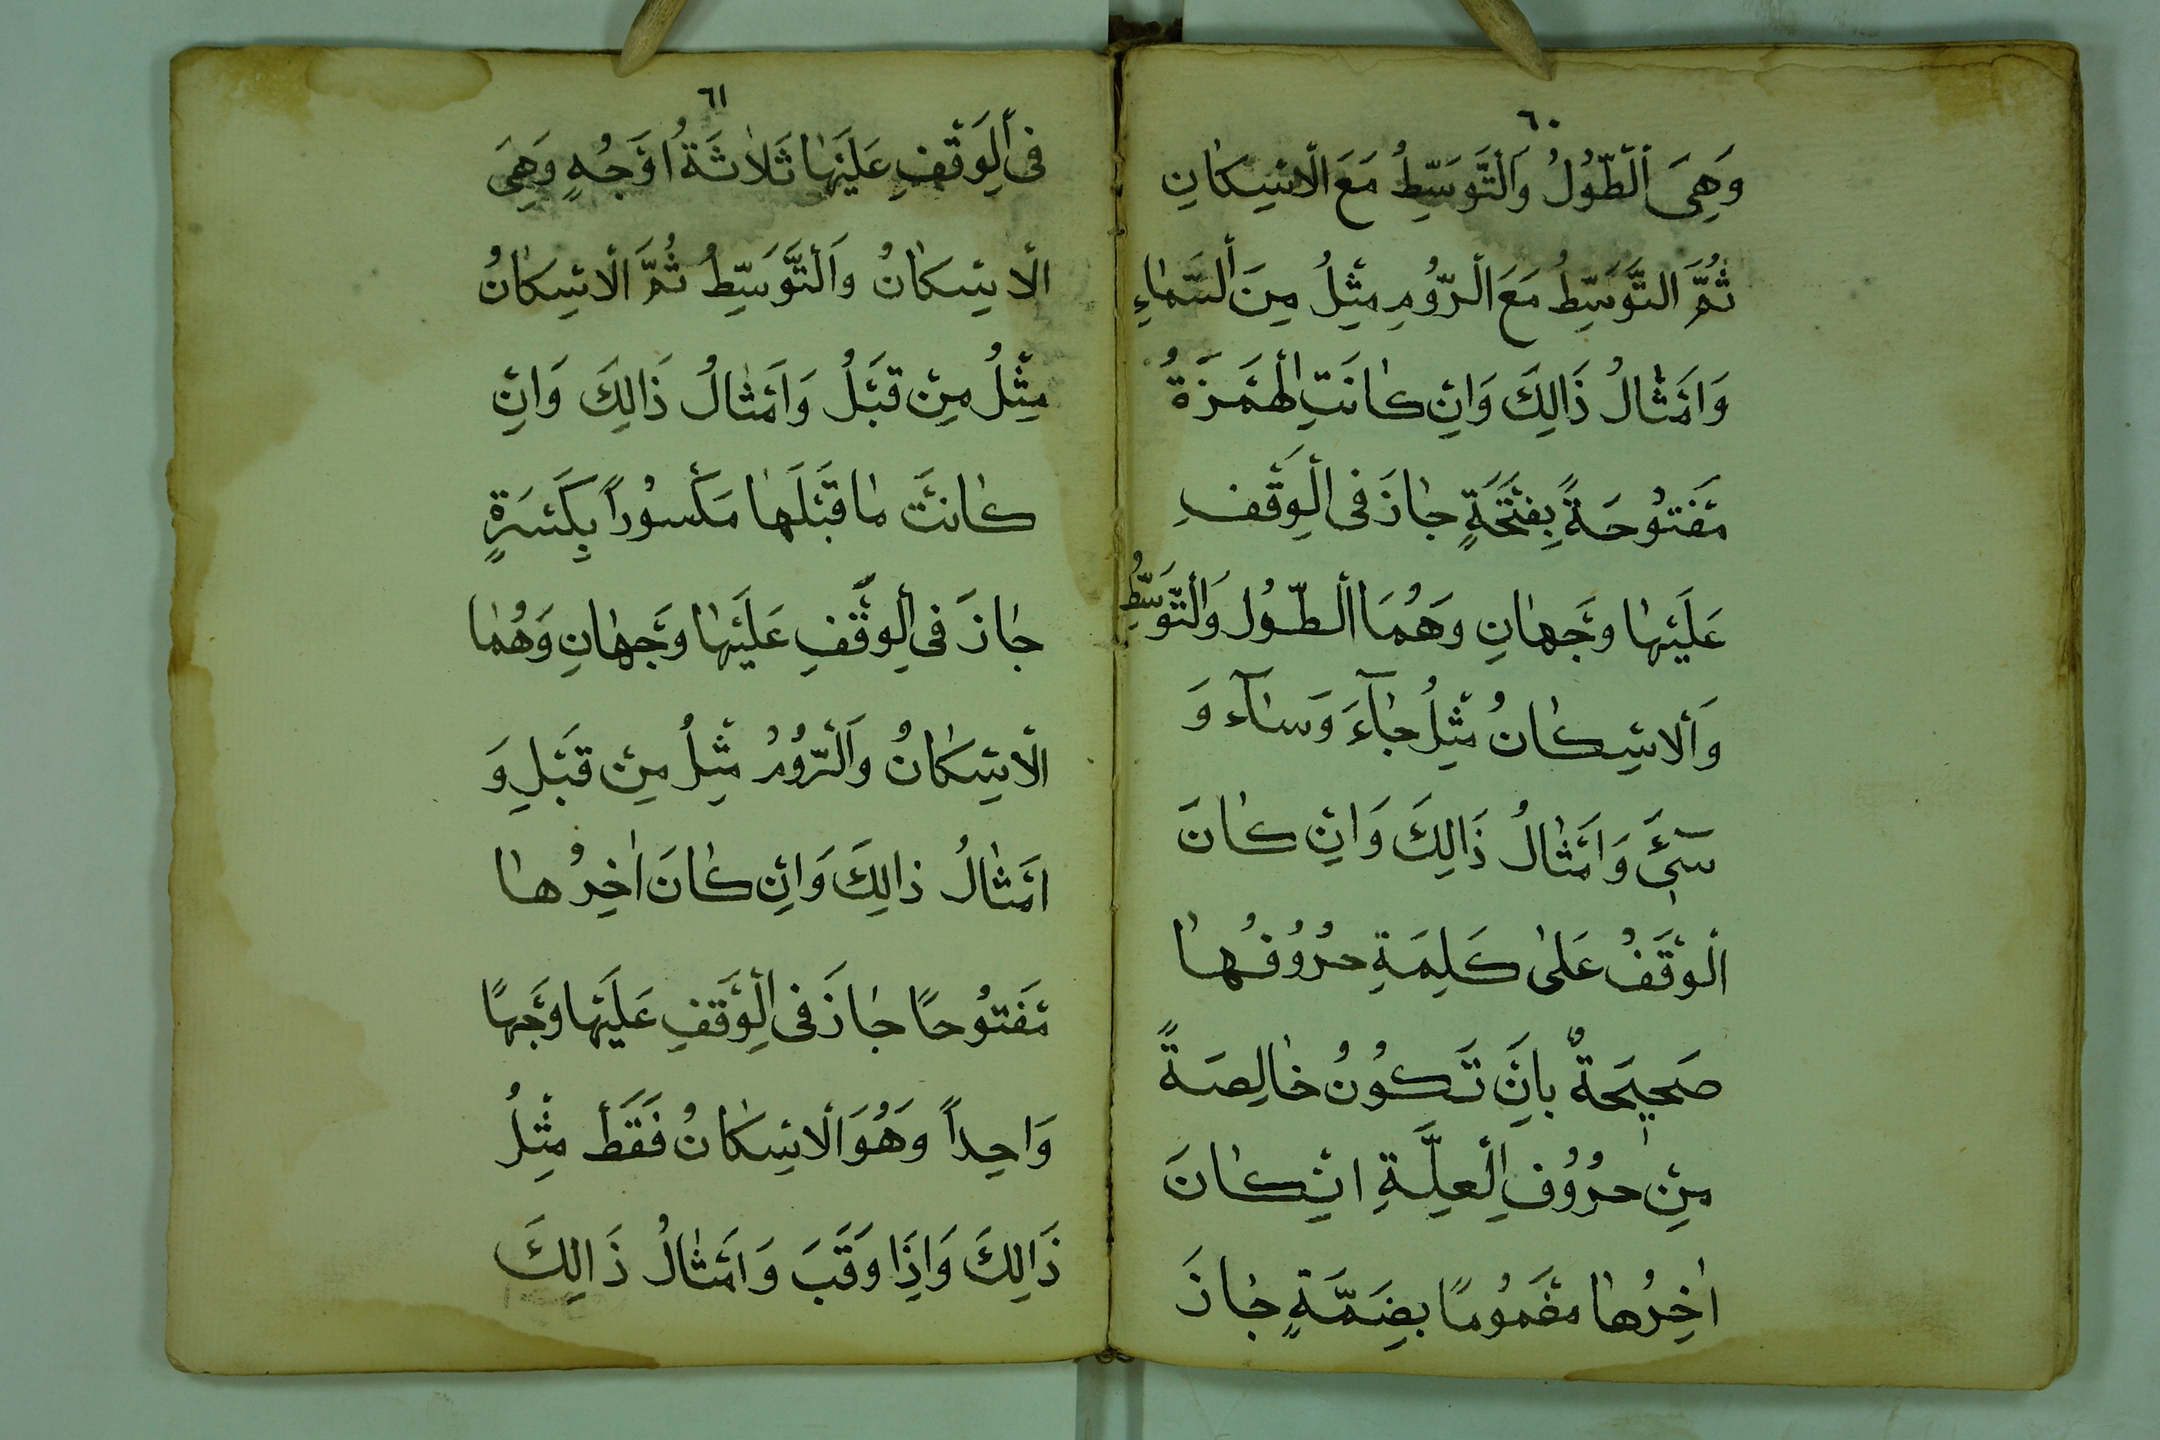 ٦٠
وَهِيَ اَلْطُّوْلُ وَاَلْتَّوَسِّطُ مَعَ الْاسْكَانِ
ثُمَّ التَّوَسِّطُ مَعَ الْرُّوْمِ مِثْلُ مِنَ اَلْسَّمٰاءِ
وَامْثٰالُ ذَالِكَ وَانْ كٰانَتِ الْهَمْزَةُ
مَفْتُوْحَةً بِفَتْحَةٍ جٰازَ فِى الْوَقْفِ
عَلَيْهٰا وَجْهانِ وَهُمَا الْطُّوْل وَاَلْتَّوَسِّطُ
وَاَلْاسْكٰانُ مِثْلُ جٰآءَ وَسٰآءَ وَ
سٓىْٔ وَاَمْثٰالُ ذَالِكَ وَانْ كٰانَ
اَلْوَقْفُ عَلىٰ كَلِمَةِ حُرُوْفُهٰا
صَحِيْحَةٌ بانَ تَكُوْنُ خٰالِصَةً
مِنْ حُرُوْفِ الْعِلَّةِ انْ كٰانَ
اٰخِرُهٰا مضْمُوْمًا بِضَمَّةٍ جٰازَ
٦١
فِى اَلْوَقْفِ عَلَيْهٰا ثَلاٰثَةُ اوْجُهٍ وَهِيَ
الْاسْكٰانُ وَاَلْتَّوَسِّطُ ثُمَّ الْاسْكٰانُ
مِثْلُ مِنْ قَبْلُ وَاَمْثٰالُ ذَالِكَ وَانْ
كٰانَتْ مٰا قَبْلَهٰا مَكْسُوْراً بِكَسْرَةٍ
جٰازَ فِى اَلْوَقْفِ عَلَيْهٰا وَجْهٰانِ وَهُمٰا
الْاسْكٰانُ وَاَلْرُّوْمُ مِثْلُ مِنْ قَبْلِ وَ
امْثٰالُ ذالِكَ وَانْ كٰانَ اٰخِرُهٰا
مَفْتُوْحًا جٰازَ فِى الْوَقْفِ عَلَيْهٰا وَجْهًا
وَاحِداً وَهُوَ اَلْاسْكٰانُ فَقَطْ مِثْلُ
ذَالِكَ وَاِذَا وَقَبَ وَامْثٰالُ ذَالِكَ